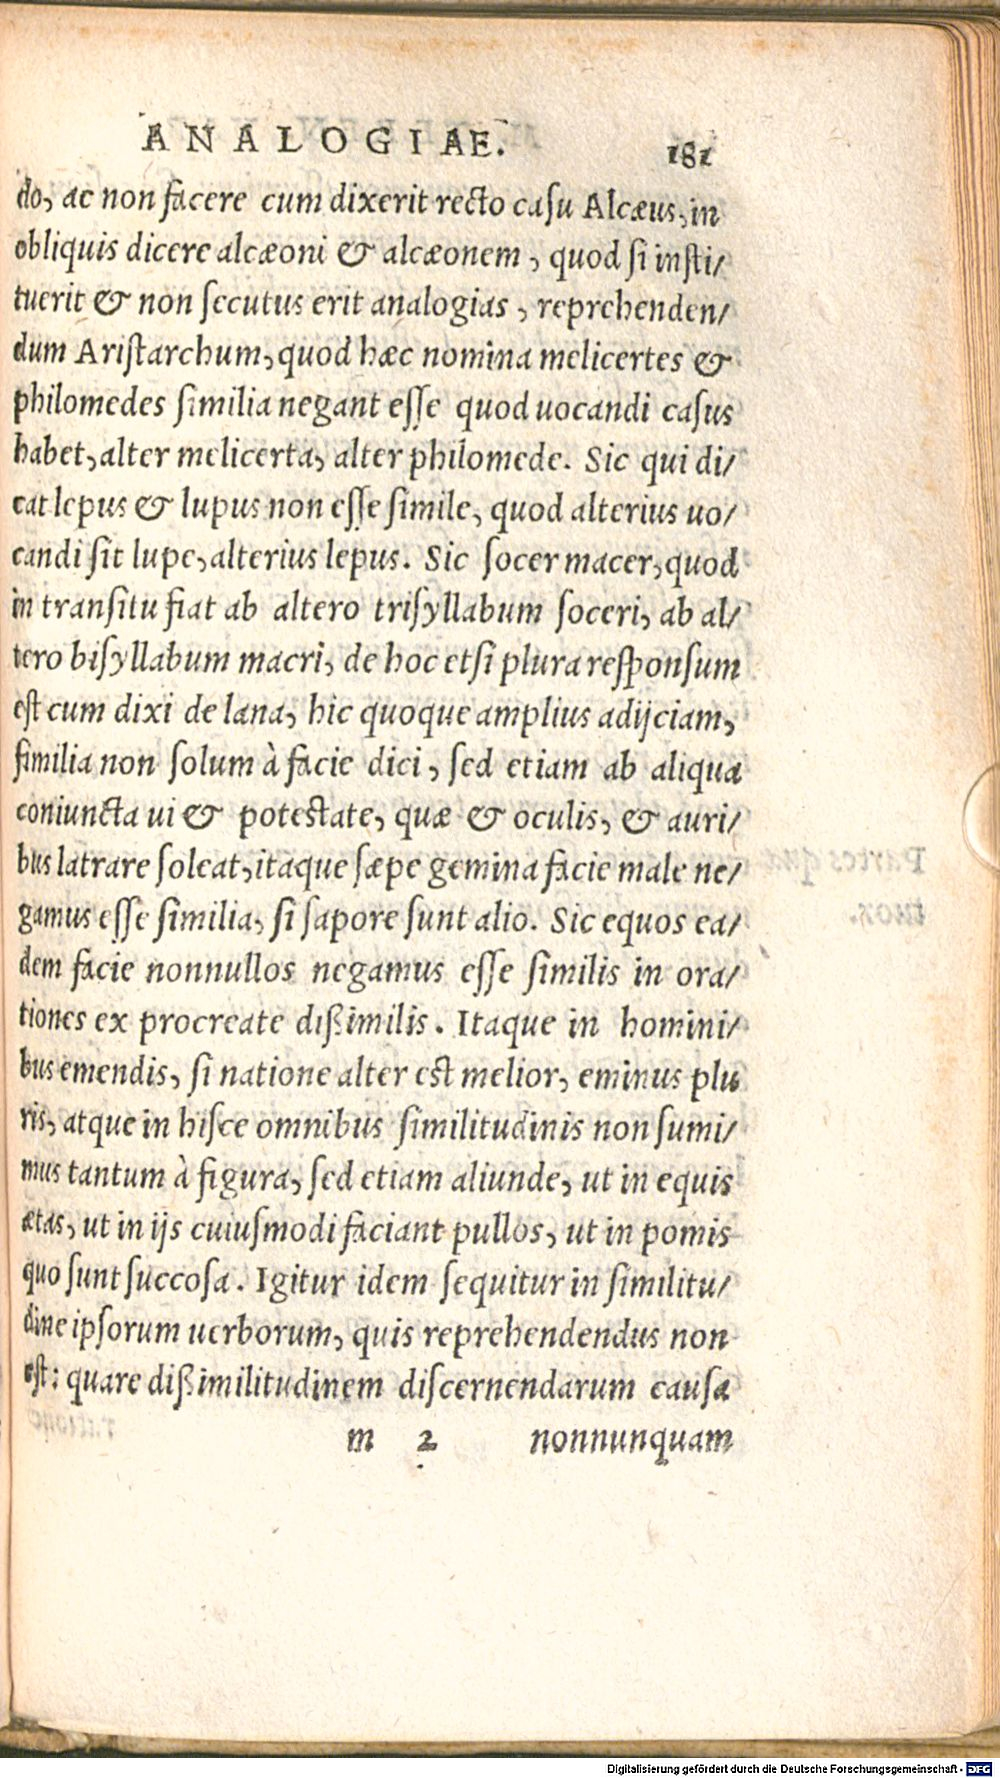 ANALOGIAE. 181
do, ac non facere cum dixerit recto casu Alcæus, in
obliquis dicere alcæoni & alcæonem, quod si insti/
tuerit & non secutus erit analogias, reprehenden/
dum Aristarchum, quod hæc nomina melicertes &
philomedes similia negant esse quod uocandi casus
habet, alter melicerta, alter philomede. Sic qui di/
cat lepus & lupus non esse simile, quod alterius uo/
candi sit lupe, alterius lepus. Sic socer macer, quod
in transitu fiat ab altero trisyllabum soceri, ab al/
tero bisyllabum macri, de hoc etsi plura responsum
est cum dixi de lana, hic quoque amplius adijciam,
similia non solum à facie dici, sed etiam ab aliqua
coniuncta ui & potestate, quæ & oculis, & auri/
bus latrare soleat, itaque sæpe gemina facie male ne/
gamus esse similia, si sapore sunt alio. Sic equos ea/
dem facie nonnullos negamus esse similis in ora/
tiones ex procreate dißimilis. Itaque in homini/
bus emendis, si natione alter est melior, eminus plu
ris, atque in hisce omnibus similitudinis non sumi/
mus tantum à figura, sed etiam aliunde, ut in equis
ætas, ut in ijs cuiusmodi faciant pullos, ut in pomis
quo sunt succosa. Igitur idem sequitur in similitu/
dine ipsorum uerborum, quis reprehendendus non
est: quare dißimilitudinem discernendarum causa
m 2 nonnunquam
Digitalisierung gefördert durch die Deutsche Forschungsgemeinschaft - DFG